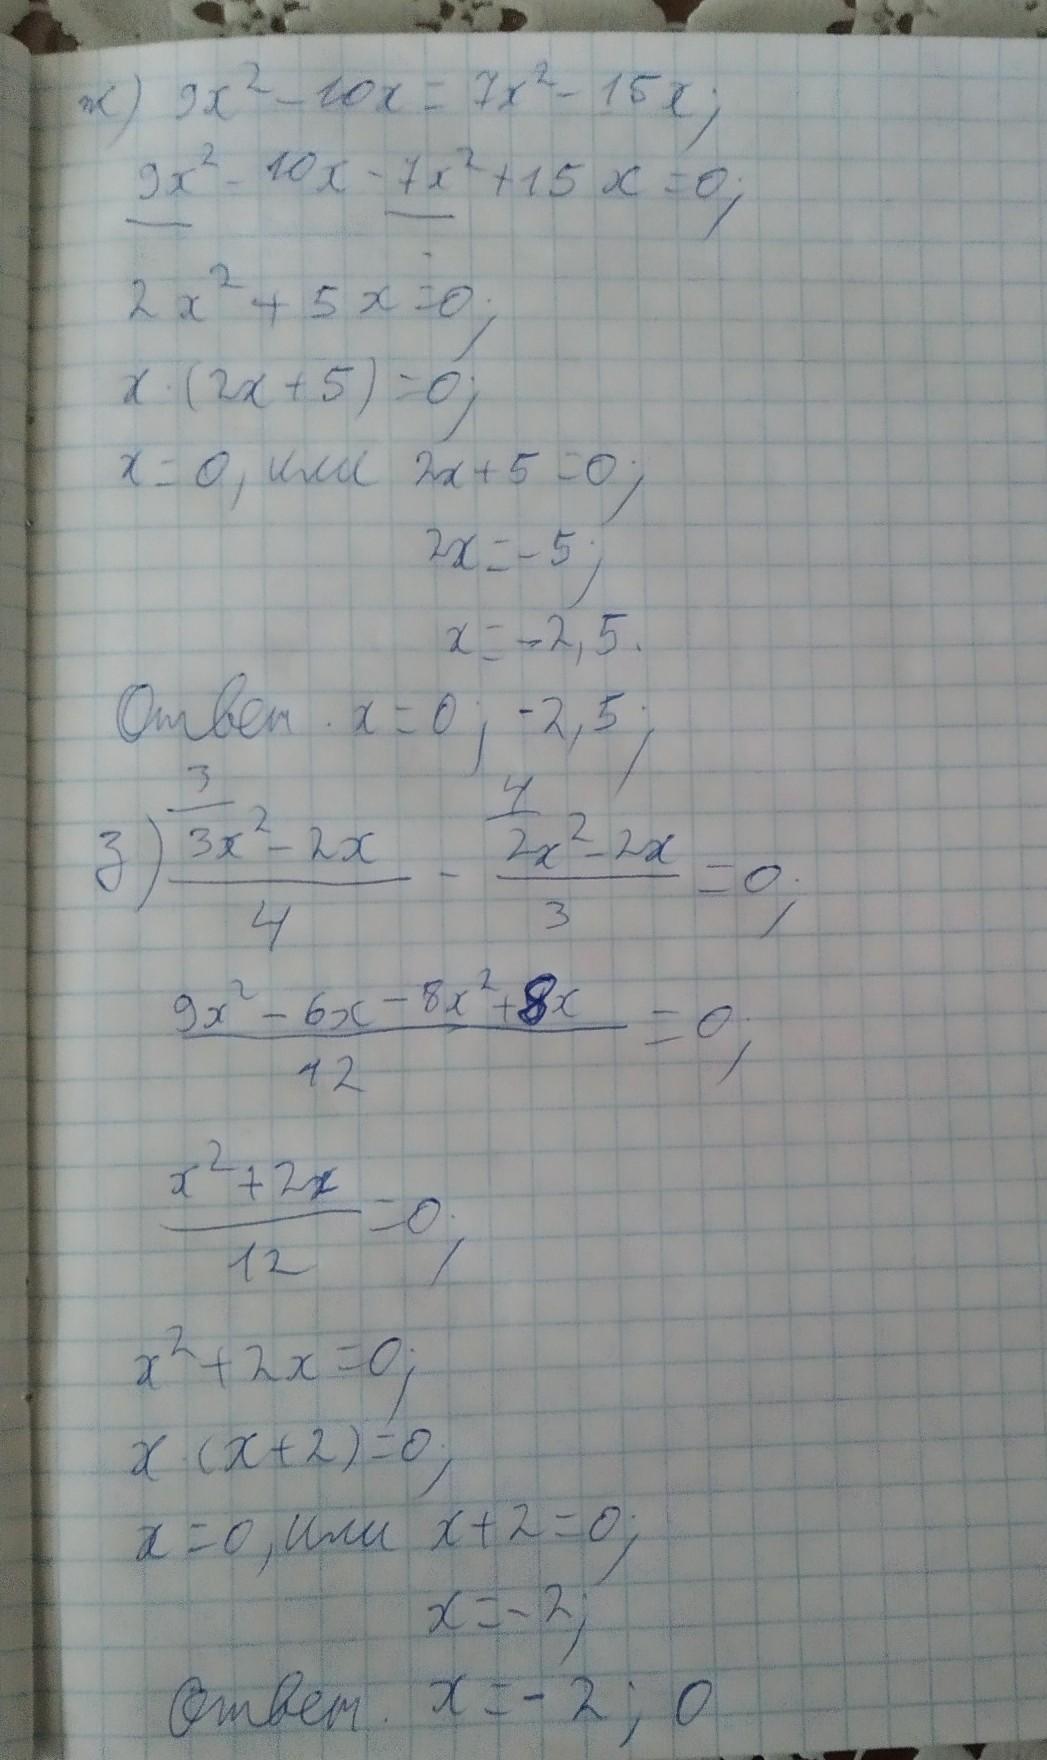 ж) 9x² - 10x = 7x² - 15x;
9x² - 10x - 7x² + 15x = 0;
2x² + 5x = 0;
x · (2x + 5) = 0;
x = 0, или 2x + 5 = 0;
2x = -5;
x = -2,5.
Ответ. x = 0; -2,5;
3 4
з) (3x² - 2x)/4 - (2x² - 2x)/3 = 0;
(9x² - 6x - 8x² + 8x)/12 = 0;
(x² + 2x)/12 = 0;
x² + 2x = 0;
x · (x + 2) = 0;
x = 0, или x + 2 = 0;
x = -2;
Ответ. x = -2; 0